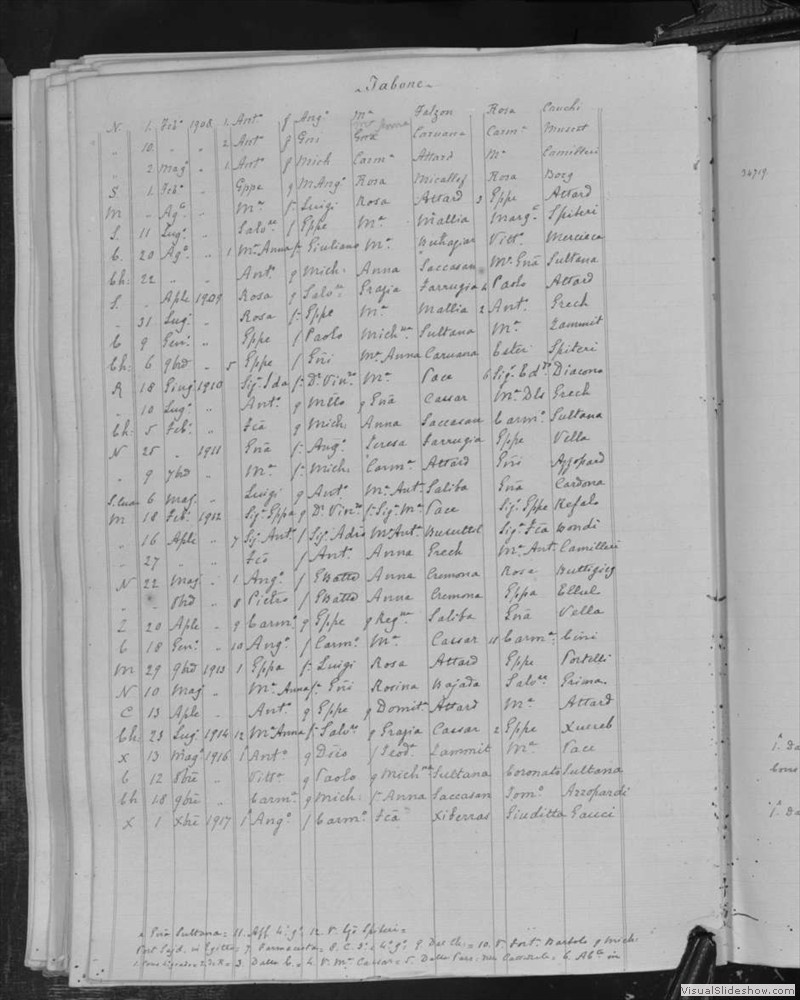 Tabone
N. 1. Feb.º 1908 1. Ant.º f Ang.º M.ª Falzon Rosa Cauchi
" 10. " " 2 Ant.º f Giu Caruana Carm.ª Muscat
" 2 Mag.º " 1 Ant.º f Mich. Carm.ª Attard M.ª Camilleri
S 1. Feb.º " Gppe q M.Ang.º Rosa Micallef Rosa Borg
M " Ag.º " M.ª f.ª Luigi Rosa Attard 3 Gppe Attard
S. 11 Lug.º " Salv.re f Gppe M.ª Mallia Marg.ª Spiteri
C. 20 Ag.º " 1 M.ª Anna f.ª Giuliano M.ª Buhagiar Vitt.ª Mercieca
Ch: 22 " " Ant.º q Mich: Anna Saccasan M.ª Gnã Sultana
S. " Aple 1909 Rosa q Salv.re Grazia Farrugia Paolo Attard
" 31 Lug.º " Rosa f.ª Gppe M.ª Mallia 2 Ant.º Grech
C 9 Gen.º " Gppe f Paolo Mich.na Sultana M.ª Zammit
Ch: 6 9bre " 5 Gppe f Gñi M.ª Anna Caruana Ester Spiteri
R 18 Giug 1910 Sig.ª Ida f.ª D.r Vin.zo M.ª Pace 6 Sig.r Ed.do Diacono
" 10 Lug.º " Ant.º q q Gnã Cassar M.ª Dls Grech
Ch: 5 Feb.º " Fcã q Mich: Anna Saccasan Carm.º Sultana
N 25 " 1911 Gnã f.ª Aug.º Teresa Farrugia Gppe Vella
" 9 7bre " M.ª f.ª Mich: Carm.ª Attard Gñi Azzopard
S. Luca 6 Mag. " Luigi q Ant.º M.ª Ant. Saliba Gnã Cardona
M 18 Feb.º 1912 Sig.ª Gppa q D.r Vin.zo f.ª Sig.ª M.ª Pace Sig.r Gppe Refalo
" 16 Aple " 7 Sig. Ant.º f Sig. Adrº M.ª Ant.ª Busuttil Sig.ª Fcã Bondi
" 27 " " Fcõ f Ant.º Anna Grech M.ª Ant. Camilleri
N 22 Mag " 1 Ang.º f GBatta Anna Cremona Rosa Buttigieg
" " 8bre " 8 Pietro f GBatta Anna Cremona Gppa Ellul
Z 20 Aple " 9 Carm.º q Gppe q Reg.na Saliba Gnã Vella
C 18 Gen.º " 10 Ang.º f Carm.º M.ª Cassar 11 Carm.ª Cini
M 29 9bre 1913 1 Gppa f.ª Luigi Rosa Attard Gppe Portelli
N 10 Mag " M.ª Anna f.ª Gñi Rosina Bajada Salv.re Grima
C 13 Aple " Ant.º q Gppe q Domit.ª Attard M.ª Attard
Ch: 23 Lug 1914 12 M.ª Anna f.ª Salv.re q Grazia Cassar 2 Gppe Xuereb
X 13 Mag.º 1916 1 Ant.º q f Teod.ª Zammit M.ª Pace
C 12 8bre " Vitt.ª q Paolo q Mich.na Sultana Coronato Sultana
Ch 18 9bre " Carm.ª q Mich: f.ª Anna Saccasan Tom.º Azzopardi
X 1 Xbre 1917 1 Ang.º f Carm.º Fcã Xiberras Giuditta Gauci
Gnã Sultana = 11. Aff. 4.º g.º 12. V.
Port Said. in Egitto = 7. Farmacista = 8. C. 3.º 4.º g.º 9. Dal Ch: = 10. V. Fort. Bartolo q Mich:
3. Dalla C = 4. V. M.ª Cassar = 5. Dalla
34719.
1. Da
1. Da
VisualSlideshow.com